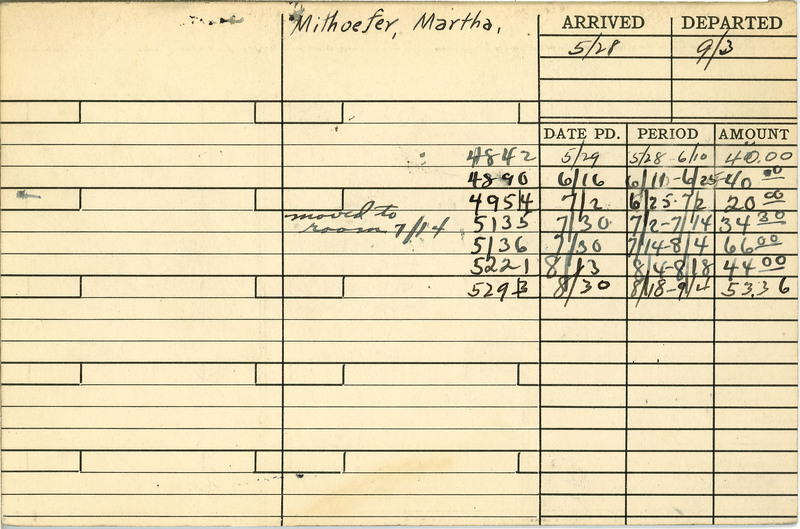 Mithoefer, Martha.
ARRIVED DEPARTED
5/28 9/3
DATE PD. PERIOD AMOUNT
4842 5/29 5/28-6/10 40.00
4890 6/16 6/11-6/25 40 00
4954 7/2 6/25-7/2 20 00
moved to
room 7/14
5135 7/30 7/2-7/14 34 30
5136 7/30 7/14-8/4 66 00
5221 8/13 8/4-8/18 44 00
5293 8/30 8/18-9/4 53.36